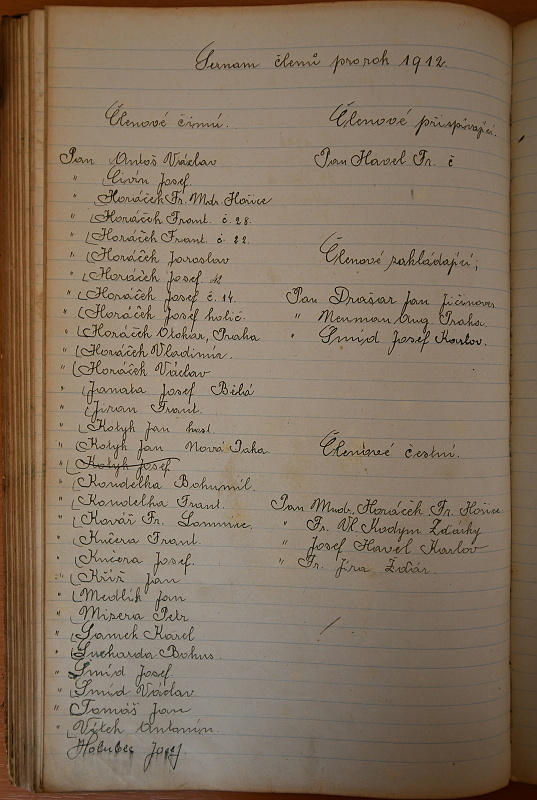 Seznam členů pro rok 1912.
Členové činní.
Pan Antoš Václav
" Civín Josef.
" Horáček Fr. Mdr. Hořice
" Horáček Frant. č. 28.
" Horáček Frant. č. 22.
" Horáček Jaroslav
" Horáček Josef
" Horáček Josef č. 14.
" Horáček Josef holič.
" Horáček Otokar, Praha
" Horáček Vladimír.
" Horáček Václav
" Janata Josef Bělá
" Jiran Frant.
" Kotyk Jan host.
" Kotyk Jan Nová Paka
" Kotyk Josef
" Koudelka Bohumil.
" Koudelka Frant.
" Kovář Fr. Lomnice.
" Kučera Frant.
" Kučera Josef.
" Kříž Jan
" Medlík Jan
" Mizera Petr
" Samek Karel
" Sucharda Bohus.
" Šmíd Josef.
" Šmíd Václav
" Tomáš Jan
" Vítek Antonín.
Holubec Josef
Členové přispívající.
Pan Havel Fr. č
Členové zakládající;
Pan Drašar Jan Jičínoves
" Menman Aug. Praha.
" Šmíd Josef Karlov.
Členové čestní.
Pan Mudr. Horáček Fr. Hořice
" Fr. Vl. Kodym Žďárky
" Josef Havel Karlov
" Fr. Jíra Žďár